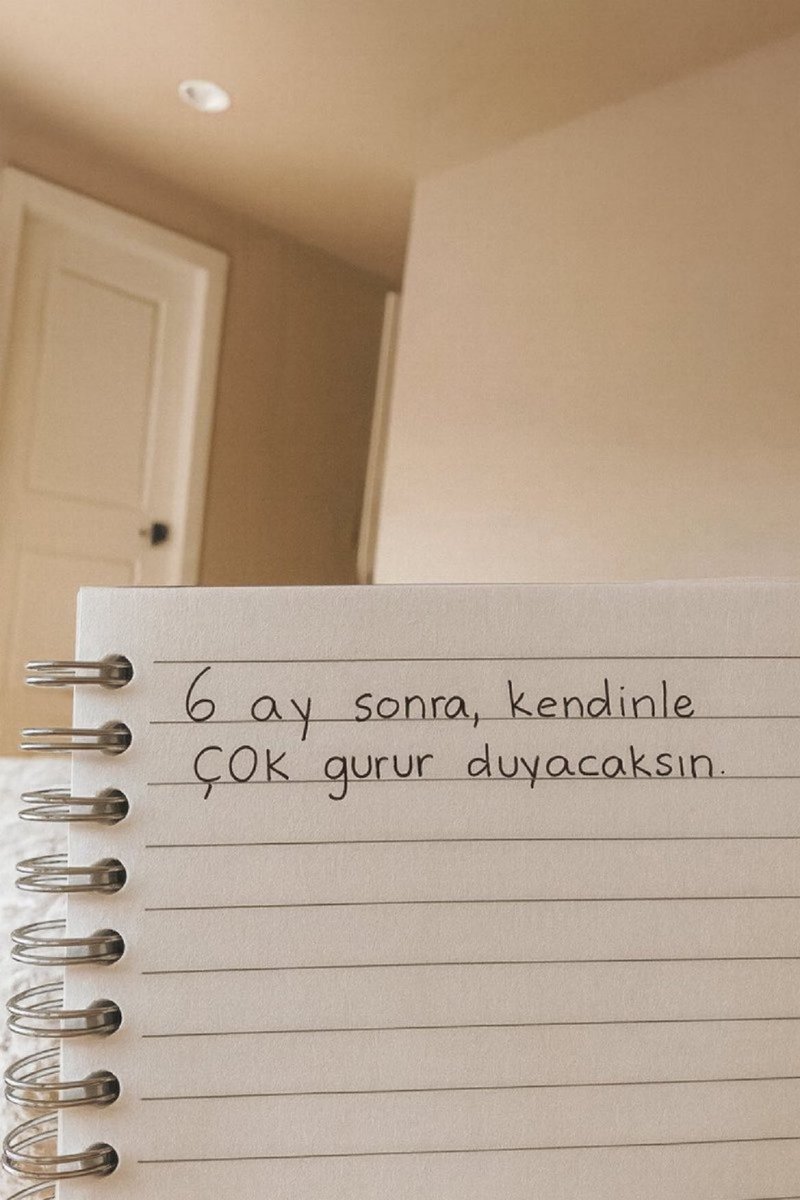 6 ay sonra, kendinle
ÇOK gurur duyacaksın.